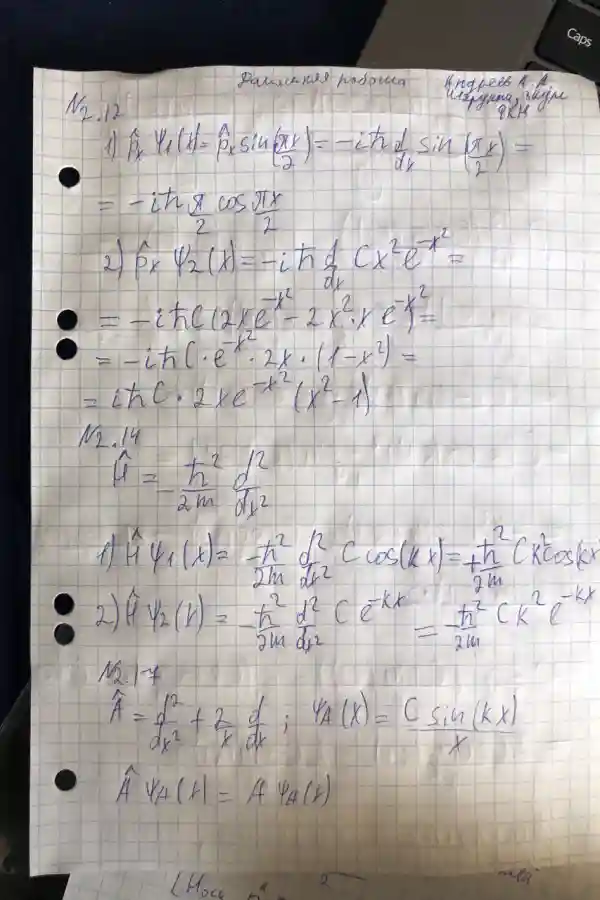 Caps
Домашняя работа
Андреев А. А.
группа, курс
ФКН
N2.12
1) p̂ₓ ψ₁(x) = p̂ₓ sin(πx/2) = -iħ d/dx sin(πx/2) =
= -iħ π/2 cos πx/2
2) p̂ₓ ψ₂(x) = -iħ d/dx Cx²e^{-x²} =
= -iħC(2xe^{-x²} - 2x²·xe^{-x²}) =
= -iħC·e^{-x²}·2x·(1-x²) =
= iħC·2xe^{-x²}(x²-1)
N2.14
Ĥ = -ħ²/2m d²/dx²
1) Ĥψ₁(x) = -ħ²/2m d²/dx² C cos(kx) = +ħ²/2m Ck²cos(kx
2) Ĥψ₂(x) = -ħ²/2m d²/dx² Ce^{-kx} = -ħ²/2m Ck²e^{-kx}
N2.17
Â = d²/dx² + 2/x d/dx ; ψ_A(x) = C sin(kx)/x
Âψ_A(x) = Aψ_A(x)